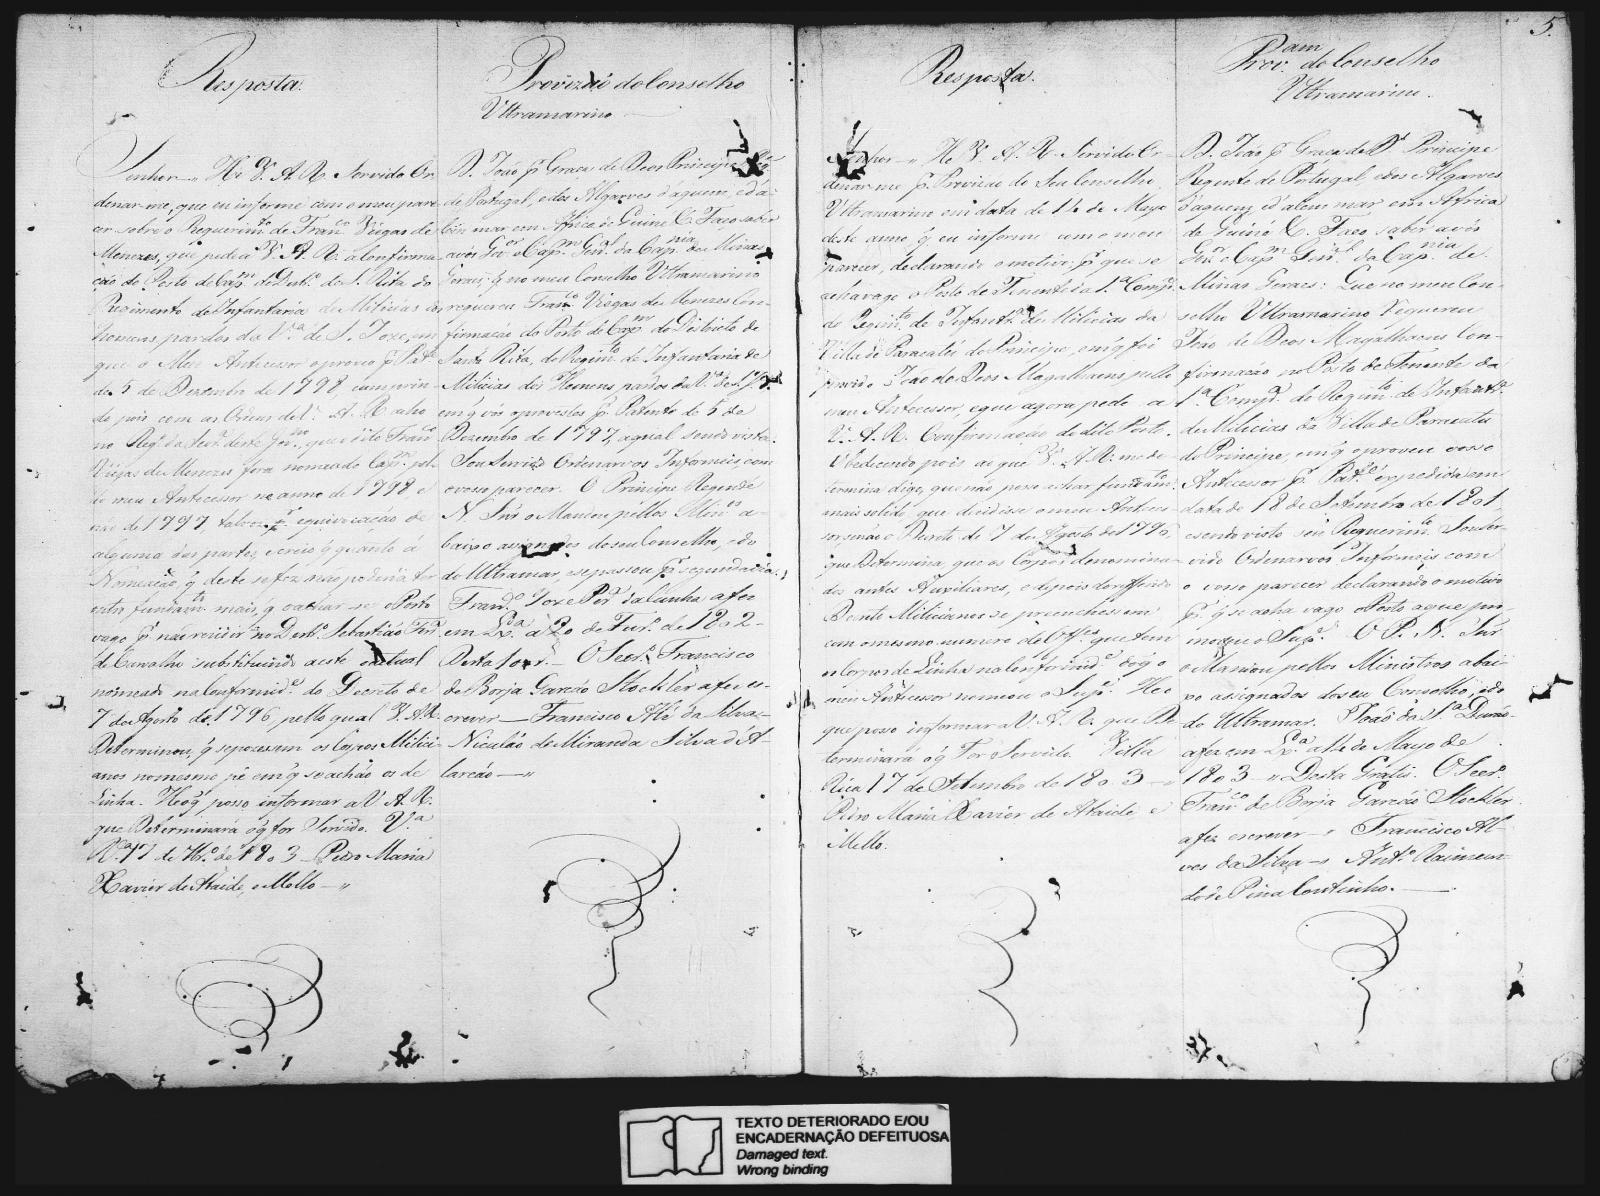 Resposta.
Senhor = He V. A. R. Servido Or
denar-me, que eu informe com o meu pare
cer sobre o Requerimto. de Franco. Viegas de
Menezes, que pede a V. A. R. a Confirma
ção do Posto de Capm. do Destro. de S. Rita do
Regimento de Infantaria de Milicias dos
homens pardos da Va. de S. Joze, em
que o Meu Antecessor o proveo p. Pate.
de 5 de Dezembro de 1798, cumprin-
do pois com as Ordens de V. A. R. acho
no Regto. da Secra. deste Gno., que o dito Franco.
Viegas de Menezes fora nomeado Capm. pel-
lo meu Antecessor no anno de 1798 e
não de 1797, talvez p. equivocação de
alguma das partes, e creio q quanto á
Nomeação, q deste se fez não poderia ter
outro fundamto. mais, q o achar-se o Posto
vago p. não rezidir no Destro. Sebastião Frz
de Carvalho substituindo a este o actual
nomeado na Conformide. do Decreto de
7 de Agosto de 1796, pello qual V. A. R.
Determinou, q se pozessem os Corpos Milici-
anos no mesmo pé em q se achão os de
Linha. He o q posso informar a V. A. R.
que Determinará o q for Servido. Va.
Ra. 17 de 7bro. de 1803 = Pedro Maria
Xavier de Ataide, e Mello = "
Provizão do Conselho
Ultramarino
D. João p. Graça de Deos Principe
de Portugal, e dos Algarves d'aquem, e d'a-
lem mar em Africa de Guine &. Faço saber
a vós Gor. e Capm. Genal. da Capnia. de Minas
Geraes; q no meu Conselho Ultramarino
requereu Franco. Viegas de Menezes Con-
firmação do Posto de Capm. do Districto de
Santa Rita, do Regimto. de Infantaria de
Milicias dos Homens pardos da Va. de S. Joze
em q vós o provestes p. Patente de 5 de
Dezembro de 1797, a qual sendo vista.
Sou Servido Ordenarvos Informeis, com
o vosso parecer. O Principe Regente
N. Snr. o Mandou pellos Minos. a-
baixo assignados do seu Conselho, e do
do Ultramar, e se passou p. segunda via.
Franco. Joze Pera. da Cunha a fez
em Lxa. a 20 de Fevro. de 1802 -
Desta 1 or. - O Secro. Francisco
de Borja Garção Stockler a fez es-
crever - Francisco Alz da Silva =
Nicoláo de Miranda Silva d'A-
larcão = "
Resposta.
Senhor = He V. A. R. Servido Or-
denar-me p. Provizão do Seu Conselho
Ultramarino em data de 14 de Mayo
deste anno, q eu informe com o meu
parecer, declarando o motivo p. que se
acha vago o Posto de Tenente da 1.a Compa.
do Regimto. de Infantra. de Milicias da
Villa de Paracatú do Principe, em q foi
provido João de Deos Magalhaens pello
meu Antecessor, e que agora pede a
V. A. R. Confirmação do dito Posto.
Obedecendo pois ao que V. A. R. me de-
termina digo, que não posso achar fundamto.
mais solido, que decidisse o meu Anteces-
sor senão o Decreto de 7 de Agosto de 1796,
que Determina, que os Corpos denomina-
dos antes Auxiliares, e depois do referido
Decreto Milicianos se prenchessem
com o mesmo numero de Offes. que tem
os Corpos de Linha na Conformide. do q o
meu Antecessor nomeou o Supe. He o
que posso informar a V. A. R. que De-
terminará o q For Servido. Villa
Rica 17 de Setembro de 1803 = "
Pedro Maria Xavier de Ataide e
Mello.
5.
Provam. do Conselho
Ultramarino.
D. João p. Graça de Ds. Principe
Regente de Portugal, e dos Algarves
d'aquem, e d'alem mar em Africa
de Guiné &. Faço saber a vós
Gor. e Capm. Genal. da Capnia. de
Minas Geraes: Que no meu Con-
selho Ultramarino Requereu
João de Deos Magalhaens Con-
firmação no Posto de Tenente da
1a. Compa. do Regimto. de Infantra.
de Milicias da Villa de Paracatu
do Principe, em q o proveu vosso
Antecessor p. Pate. expedida em
data de 18 de Setembro de 1801,
e sendo visto seu Requerimto. Sou Ser-
vido Ordenarvos Informeis com
o vosso parecer declarando o motivo
p. q se acha vago o Posto a que pro-
moveu o Supe. O P. N. Snr.
o Mandou pellos Ministros abai-
xo assignados do seu Conselho, e do
do Ultramar. João da Sa.
a fez em Lxa. a 14 de Mayo de
1803 = " Desta Grátis. O Secro.
Franco. de Borja Garção Stockler
a fez escrever = Francisco Al-
ves da Silva = Anto. Raimun-
do de Pina Coutinho. -
TEXTO DETERIORADO E/OU
ENCADERNAÇÃO DEFEITUOSA
Damaged text.
Wrong binding